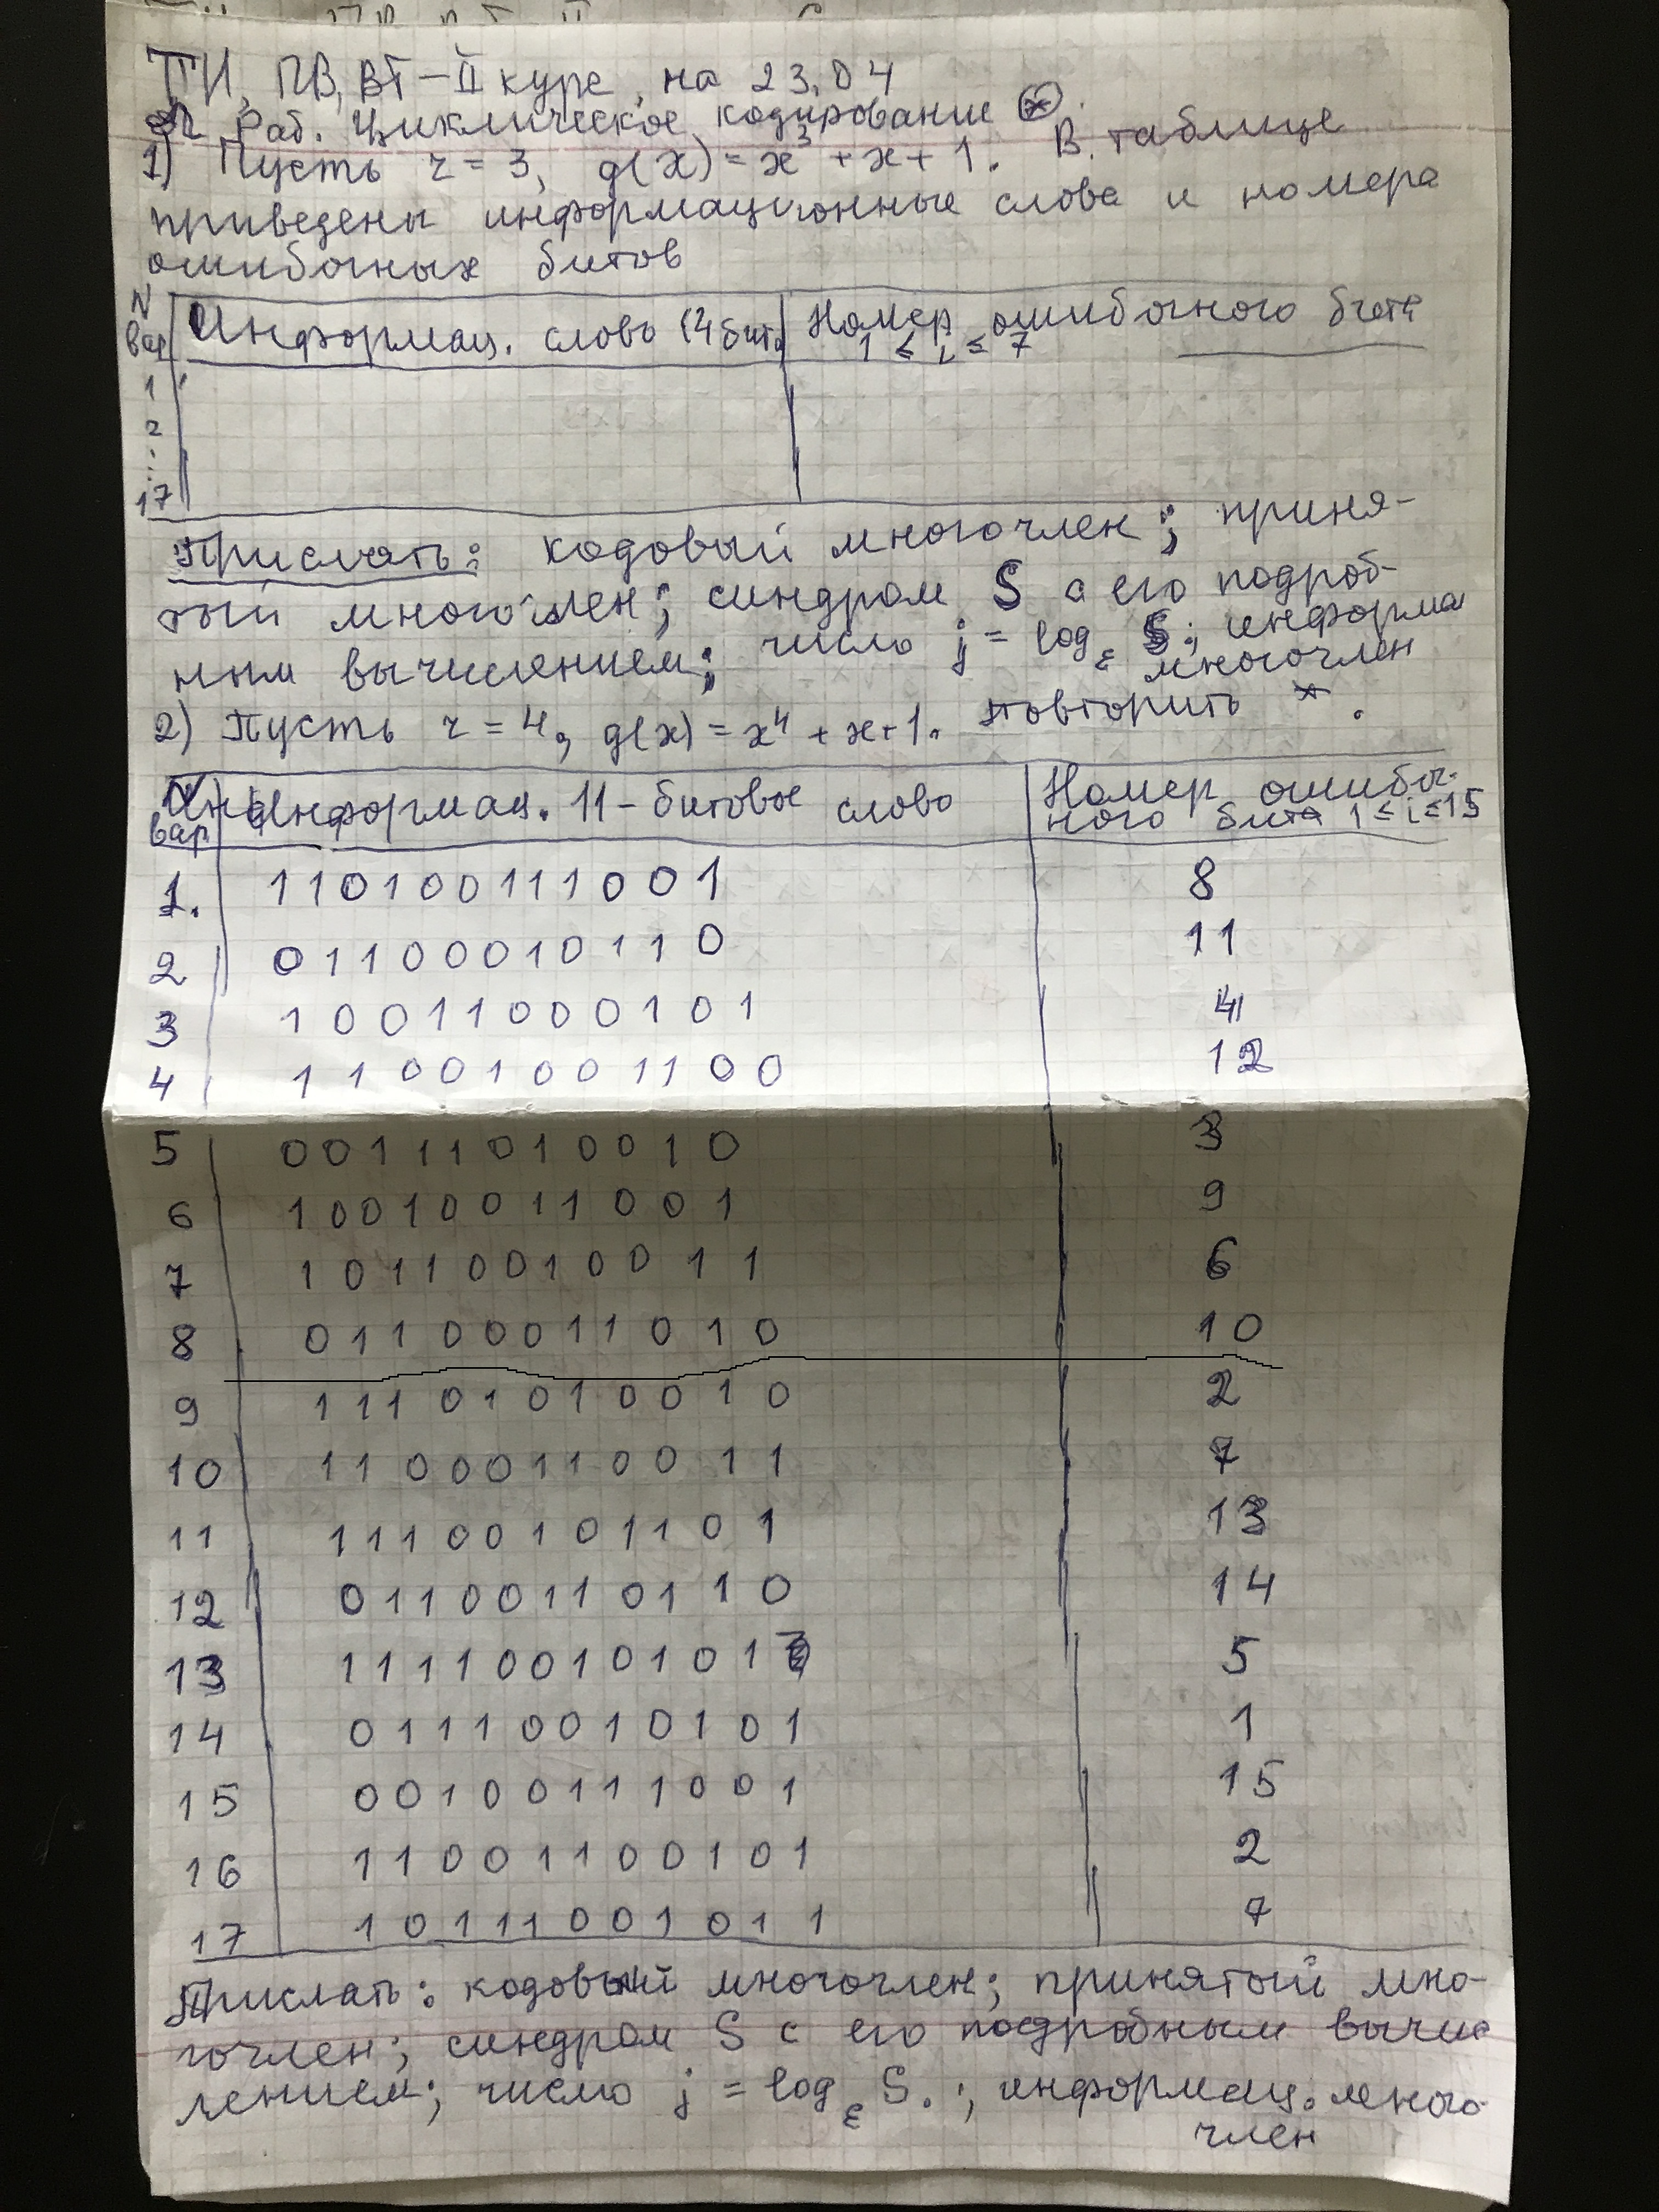 ТИ, ПВ, ВТ – II курс, на 23.04
Раб. Циклическое кодирование *.
1) Пусть r = 3, g(x) = x³ + x + 1. В таблице
приведены информационные слова и номера
ошибочных битов
N вар Информац. слово (4 бита Номер ошибочного бита 1 ≤ i ≤ 7
1
2
⋮
17
Прислать: кодовый многочлен; приня-
тый многочлен; синдром S с его подроб-
ным вычислением; число j = log_ε S; информа
многочлен
2) Пусть r = 4, g(x) = x⁴ + x + 1. Повторить *.
N вар Информац. 11-битовое слово Номер ошибоч-
ного бита 1 ≤ i ≤ 15
1. 110100111001 8
2 01100010110 11
3 10011000101 4
4 11001001100 12
5 00111010010 3
6 10010011001 9
7 10110010011 6
8 01100011010 10
9 11101010010 2
10 11000110011 7
11 11100101101 13
12 01100110110 14
13 11110010101 5
14 01110010101 1
15 00100111001 15
16 11001100101 2
17 10111001011 7
Прислать: кодовый многочлен; принятый мно-
гочлен; синдром S с его подробным вычис
лением; число j = log_ε S.; информац. много-
член